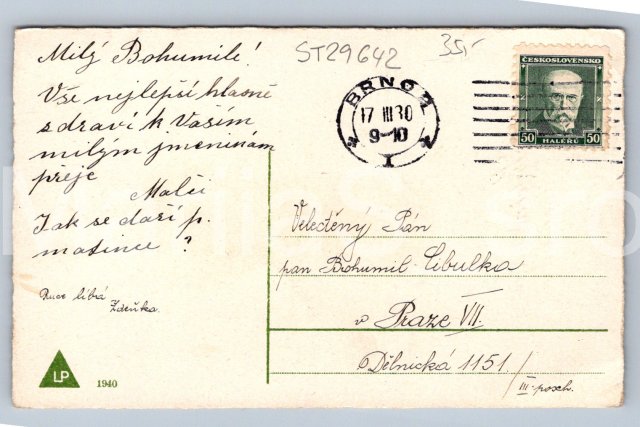 Milý Bohumile!
Vše nejlepší hlavně
zdraví k Vašim
milým jmeninám
přeje
Malči
Jak se daří p.
matince?
Ruce líbá
Zdeňka.
LP
1940
ST29642
35,-
BRNO 2
17 III 30
9-10
I
ČESKOSLOVENSKO
50 50
HALÉŘŮ
Velectěný Pán
pan Bohumil Cibulka
v Praze VII.
Dělnická 1151/
III. posch.